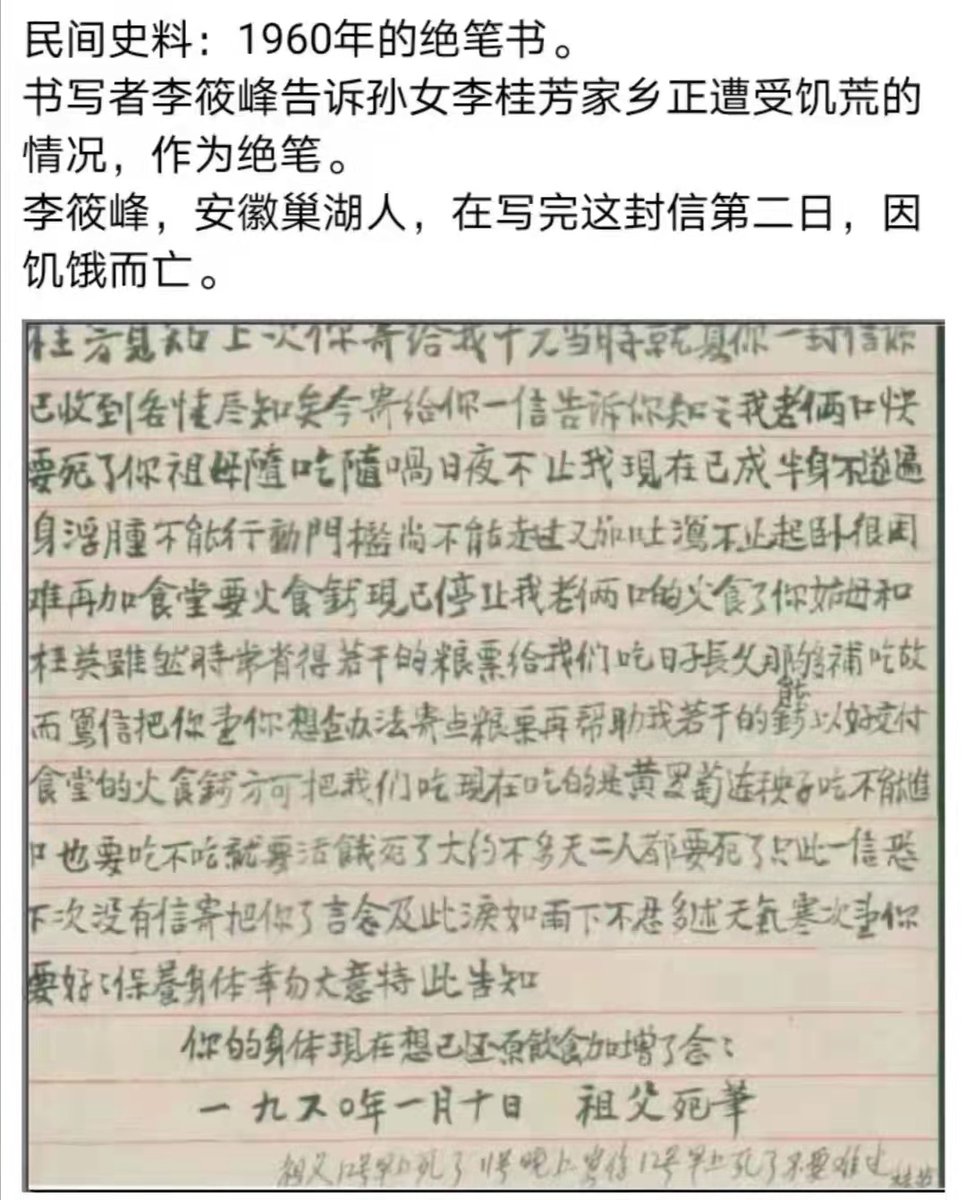 民间史料：1960年的绝笔书。
书写者李筱峰告诉孙女李桂芳家乡正遭受饥荒的
情况，作为绝笔。
李筱峰，安徽巢湖人，在写完这封信第二日，因
饥饿而亡。
桂芳見知上次你寄给我十元当時就寫你一封信諒
已收到各情尽知矣今寄给你一信告诉你知之我老俩口快
要死了你祖母隨吃隨喎日夜不止我現在已成半身不遂遍
身浮腫不能行動門檻尚不能走过又加吐瀉不止起卧很困
难再加食堂要火食錢現已停止我老俩口的火食了你姑母和
桂英雖然時常省得若干的粮票给我们吃日子長久那能够補吃故
而寫信把你望你想盡办法寄点粮票再帮助我若干的錢以好交付
食堂的火食錢方可把我们吃現在吃的是黄罗蔔连秧子吃不能進
口也要吃不吃就要活餓死了大约不多天二人都要死了只此一信恐
下次没有信寄把你了言念及此淚如雨下不忍多述天氣寒次望你
要好〻保養身体幸勿大意特此告知
你的身体現在想已还原飲食加增了念〻
一九六〇年一月十日 祖父死筆
祖父12号早上死了 11号晚上写信 12号早上死了不要难过